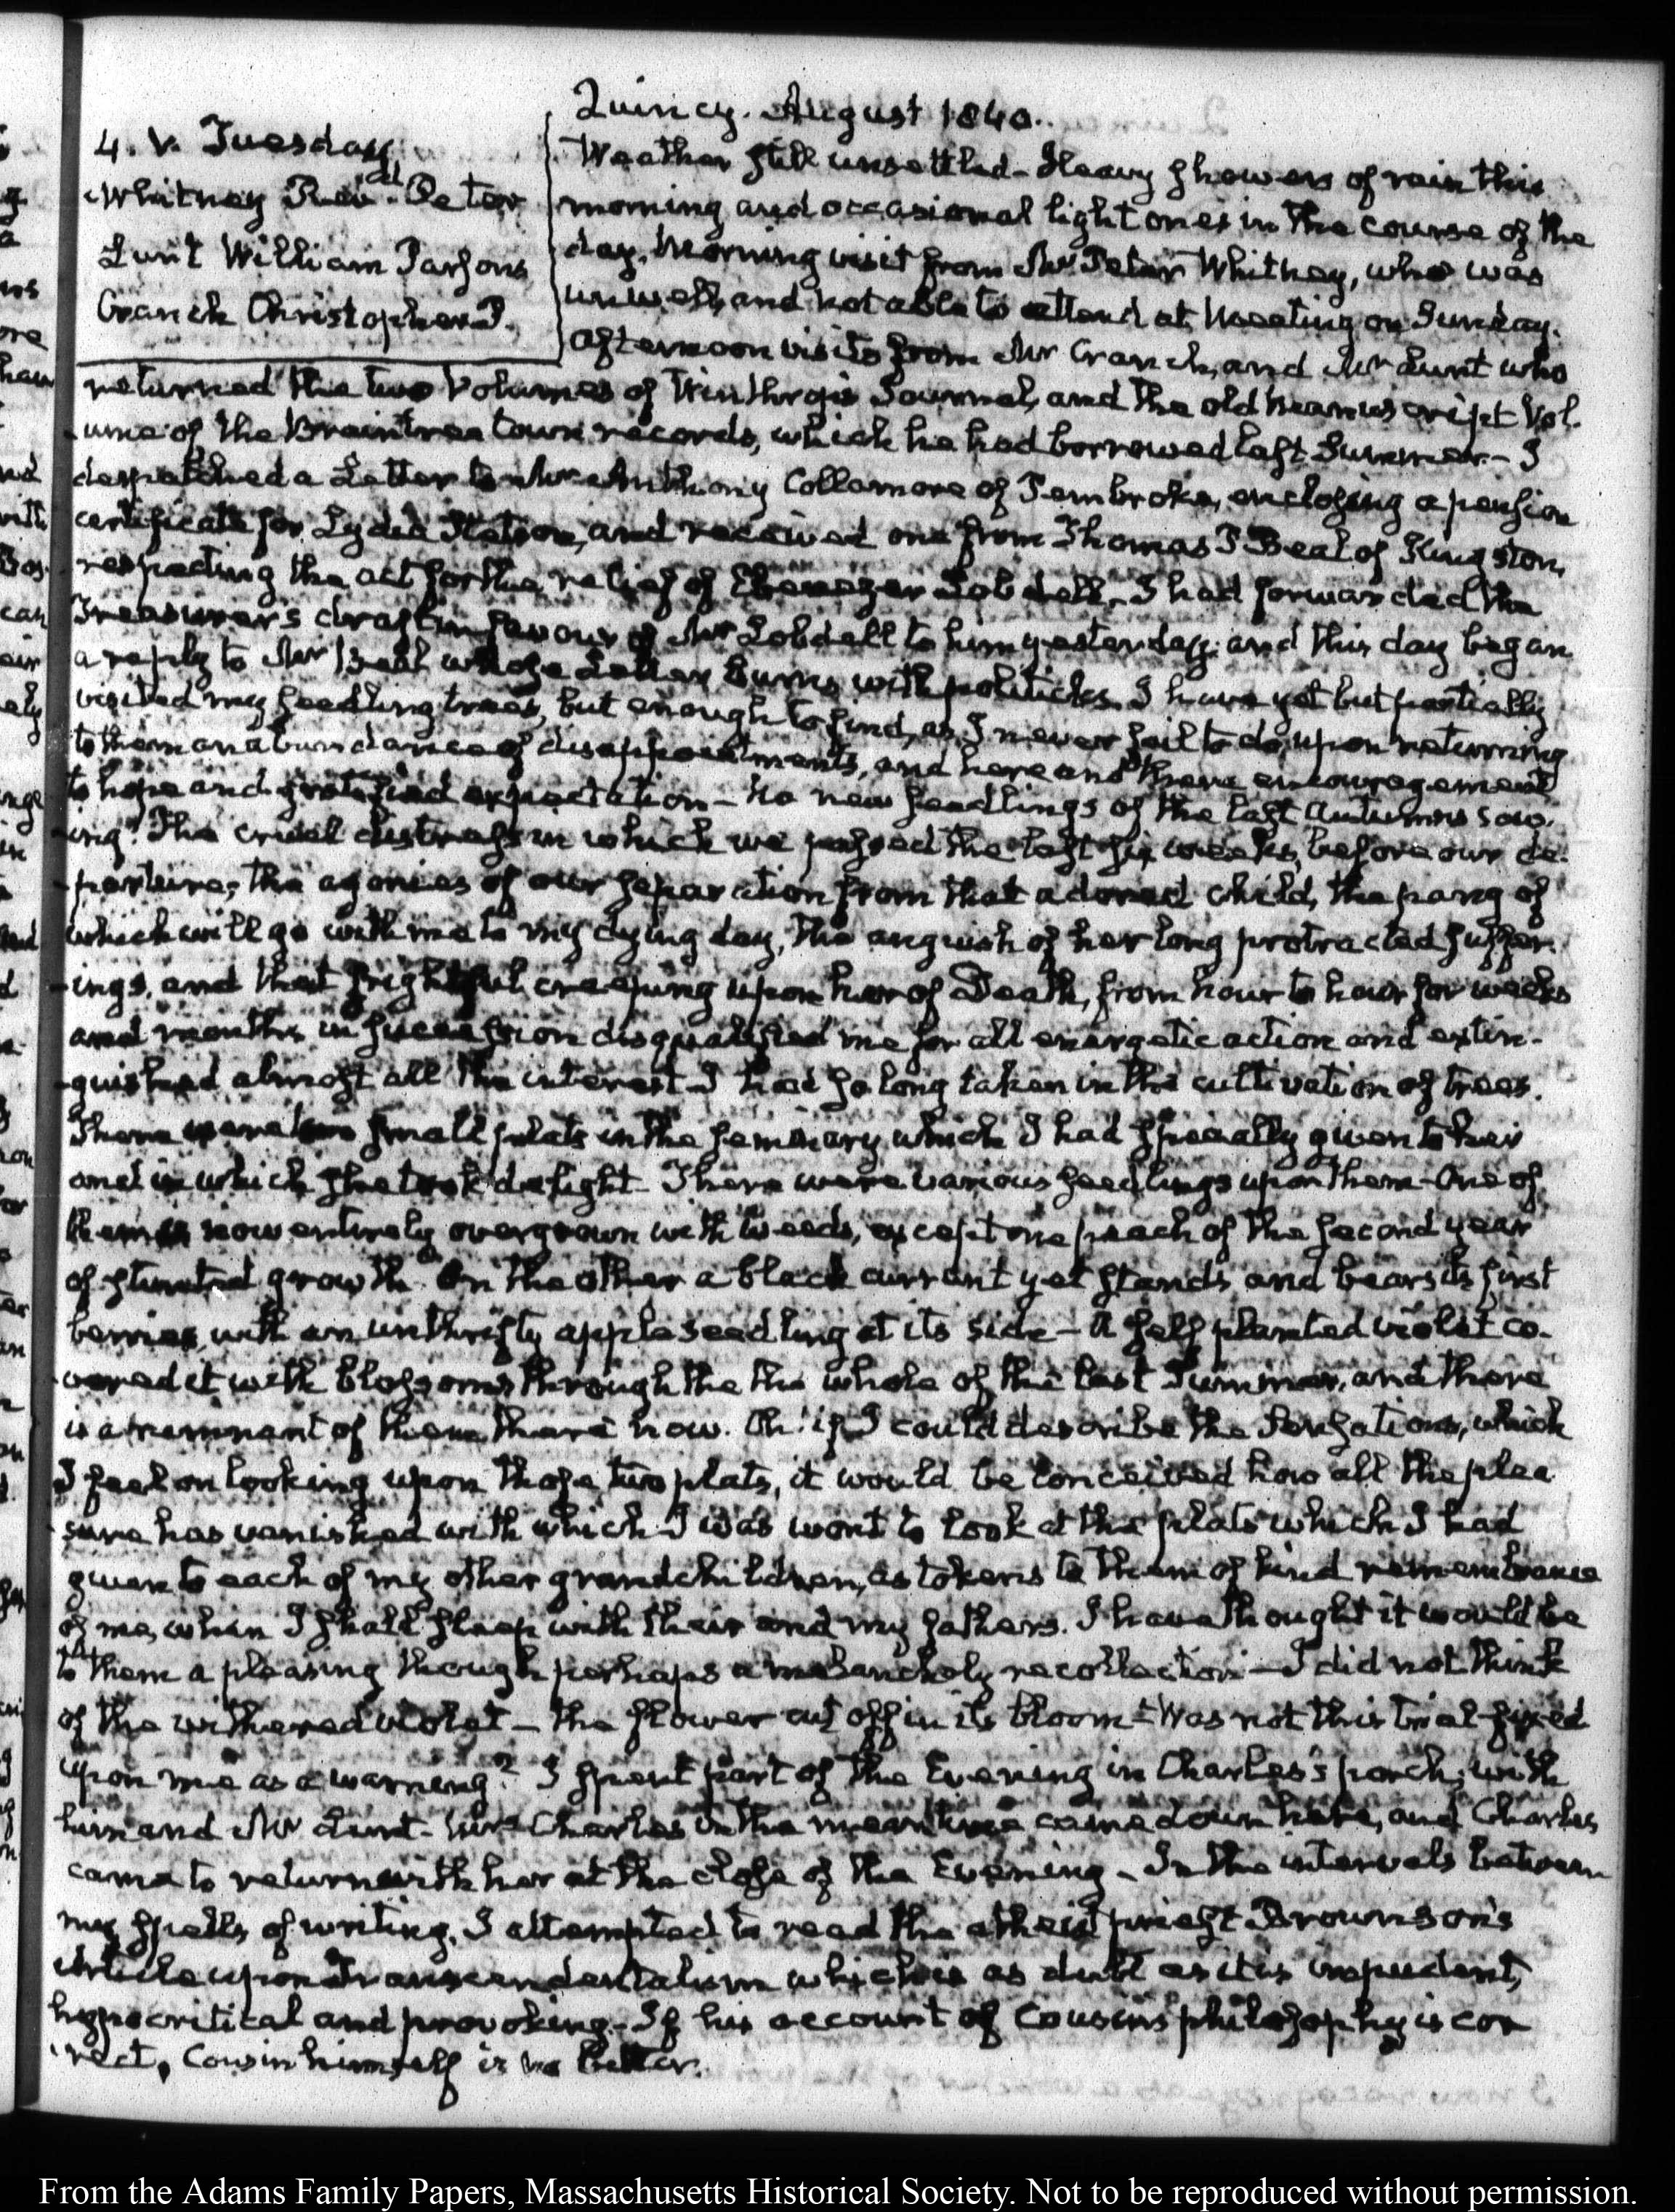 Quincy. August 1840.
4. V. Tuesday.
Whitney Revd. Peter
Lunt William Parsons
Cranch Christopher P.
Weather still unsettled - Heavy showers of rain this
morning and occasional light ones in the course of the
day. Morning visit from Mr Peter Whitney, who was
unwell, and not able to attend at Meeting on Sunday.
afternoon visits from Mr Cranch, and Mr Lunt who
returned the two Volumes of Winthrop's Journal, and the old manuscript Vol-
ume of the Braintree town records, which he had borrowed last Summer. - I
despatched a Letter to Mr Anthony Collamore of Pembroke, enclosing a pension
certificate for Lydia Stetson, and received one from Thomas P Beal of Kingston,
respecting the act for the relief of Ebenezer Lobdell. I had forwarded the
Treasurer's draft in favour of Mr Lobdell to him yesterday: and this day began
a reply to Mr Beal whose Letter burns with politicks. I have yet but partially
visited my seedling trees, but enough to find, as I never fail to do, upon returning
to them an abundance of disappointments, and here and there encouragement
to hope and gratified expectation - No new seedlings of the last Autumn's sow-
ing. The cruel distress in which we passed the last six weeks, before our de-
parture; the agonies of our separation from that adored child, the pang of
which will go with me to my dying day, the anguish of her long protracted suffer-
ings, and that frightful creeping upon her of Death, from hour to hour for weeks
and months in succession disqualified me for all energetic action and extin-
guished almost all the interest I had so long taken in the cultivation of trees.
There were two small plats in the seminary which I had specially given to her
and in which she took delight. There were various seedlings upon them - One of
them is now entirely overgrown with weeds, except one peach of the second year
of stunted growth. On the other a black currant yet stands and bears its first
berries, with an unthrifty apple seedling at its side - A self planted violet co-
vered it with blossoms through the the whole of the last Summer, and there
is a remnant of them there now. Oh! if I could describe the Sensations, which
I feel on looking upon those two plats, it would be conceived how all the plea
sure has vanished with which I was wont to look at the plats which I had
given to each of my other grandchildren, as tokens to them of kind remembrance
of me, when I shall sleep with their and my fathers. I have thought it would be
to them a pleasing though perhaps a melancholy recollection - I did not think
of the withered violet - the flower cut off in its bloom - Was not this trial fixed
upon me as a warning? I spent part of the Evening in Charles's porch, with
him and Mr Lunt - Mrs Charles in the mean time came down here, and Charles
came to return with her at the close of the Evening - In the intervals between
my spells of writing, I attempted to read the atheist priest Brownson's
Article upon Transcendentalism which is as dull as it is impudent,
hypocritical and provoking. - If his account of Cousin's philosophy is cor
rect, Cousin himself is no better.
From the Adams Family Papers, Massachusetts Historical Society. Not to be reproduced without permission.